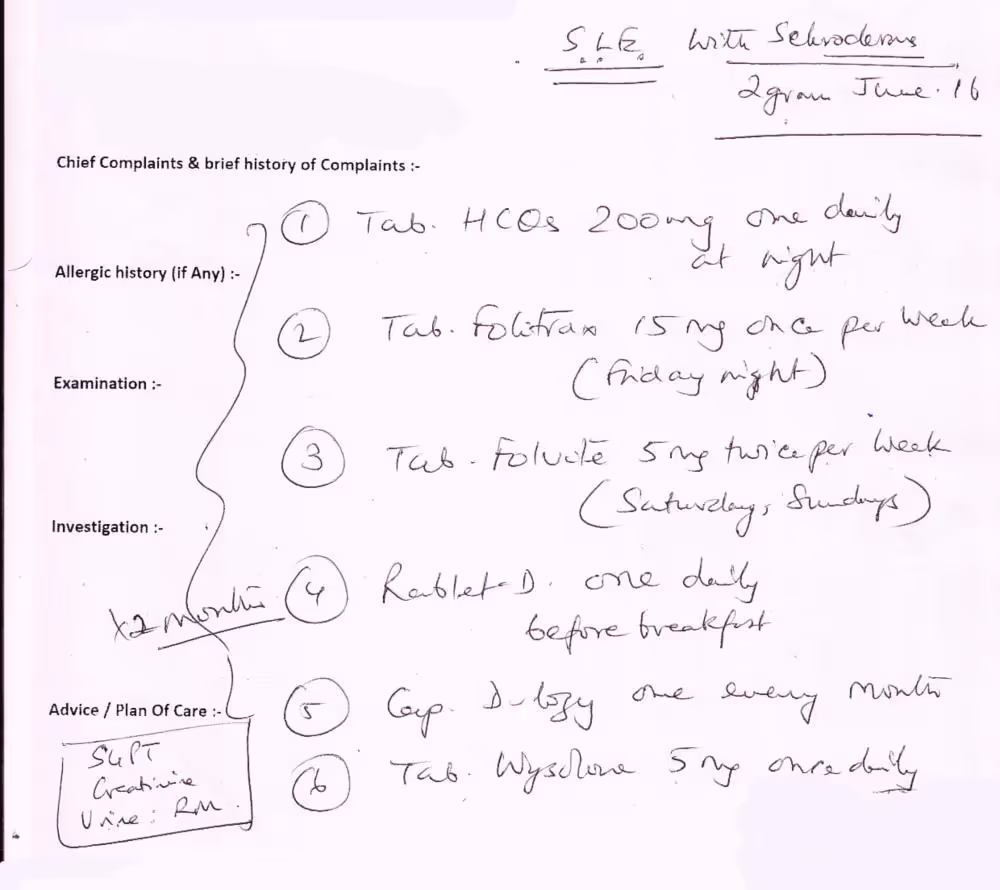 S.L.E. with Schroderms
2gram June. 16
Chief Complaints & brief history of Complaints :-
① Tab. HCQs 200mg one daily
at night
Allergic history (if Any) :-
② Tab. Folitrax 15 mg once per week
(Friday night)
Examination :-
③ Tab. Folvite 5 mg twice per week
(Saturday, Sundays)
Investigation :-
④ Rablet-D. one daily
x2 months
before breakfast
⑤ Cap. D-lozy one every month
Advice / Plan Of Care :-
⑥ Tab. Wysolone 5 mg once daily
SGPT
Creatinine
Urine : RM